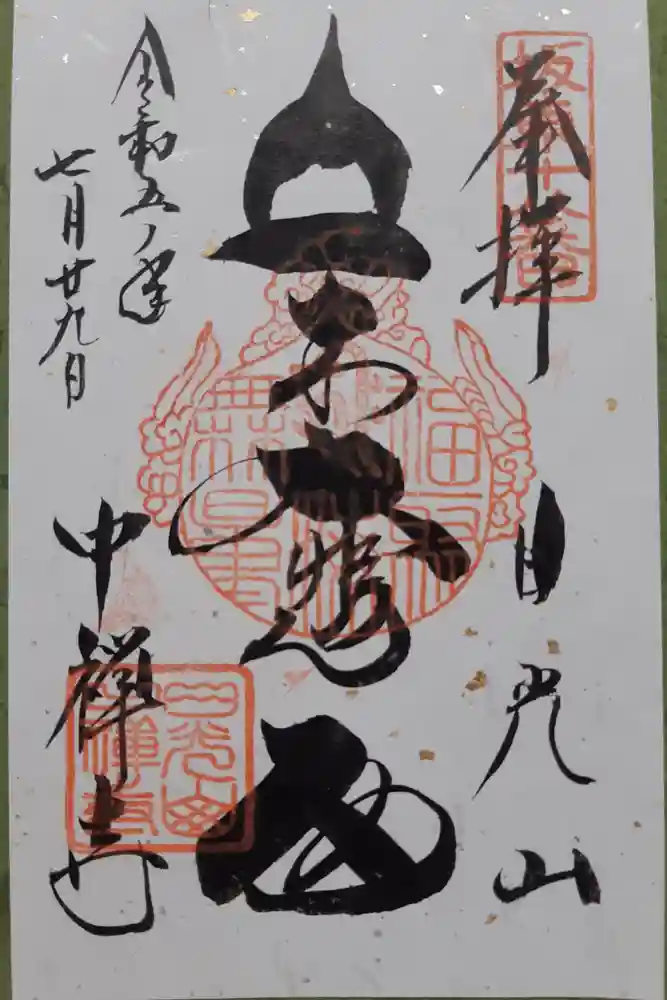 坂東十八番
奉拝
日光山
大悲
福聚
無量
令和五ノ年
七月廿九日
中禅寺
日光山
中禅寺